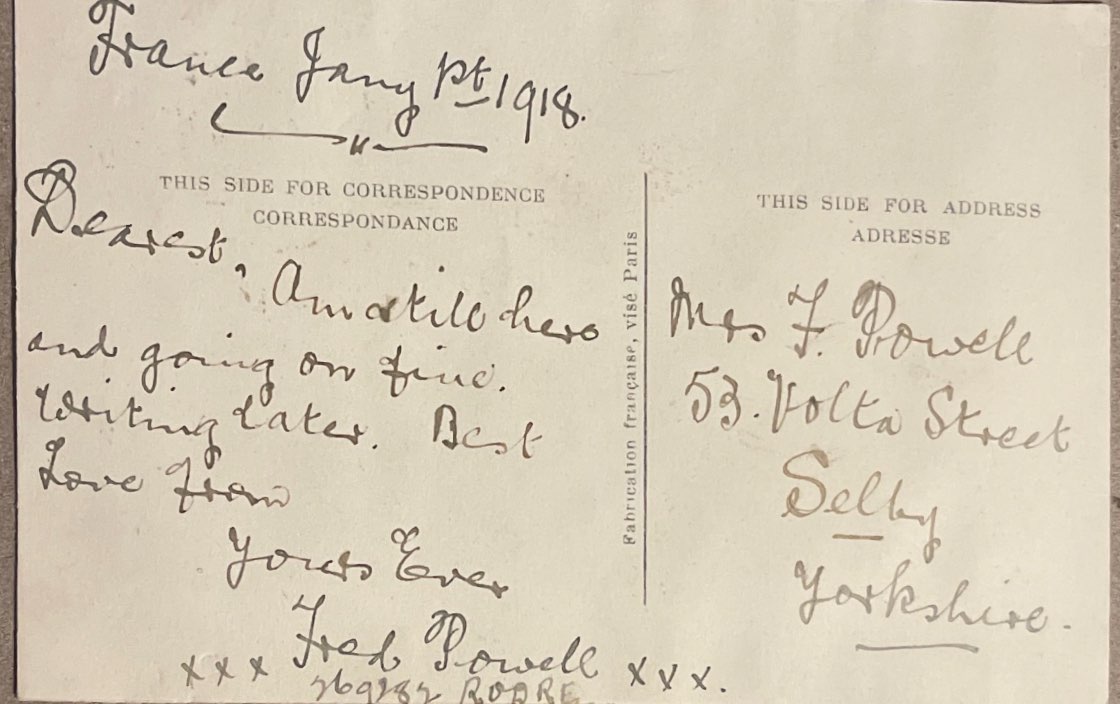 France Jany 1st 1918.
THIS SIDE FOR CORRESPONDENCE
CORRESPONDANCE
Dearest,
Am still here
and going on fine.
Writing later. Best
Love from
Yours Ever
Fred Powell
x x x x x x.
Fabrication française, visé Paris
THIS SIDE FOR ADDRESS
ADRESSE
Mrs F. Powell
53. Volta Street
Selby
Yorkshire.